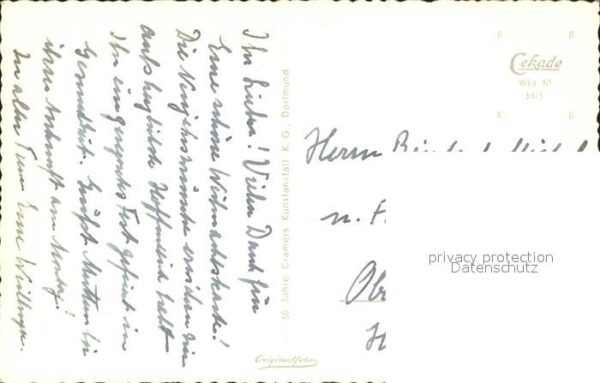 Ihr Lieben! Vielen Dank für
Eure schöne Weihnachtskarte!
Die Neujahrswünsche erwidern wir
aufs herzlichste. Hoffentlich habt
Ihr ein gutes Fest gefeiert in
Gesundheit. Grüßt Mutter bei
ihrer Ankunft am
In alter Treue Eure
50 Jahre Cramers Kunstanstalt K.G., Dortmund
Originalfoto
Cekade
Wld 30
51/5
Herrn
u. F
Ob
H
privacy protection
Datenschutz